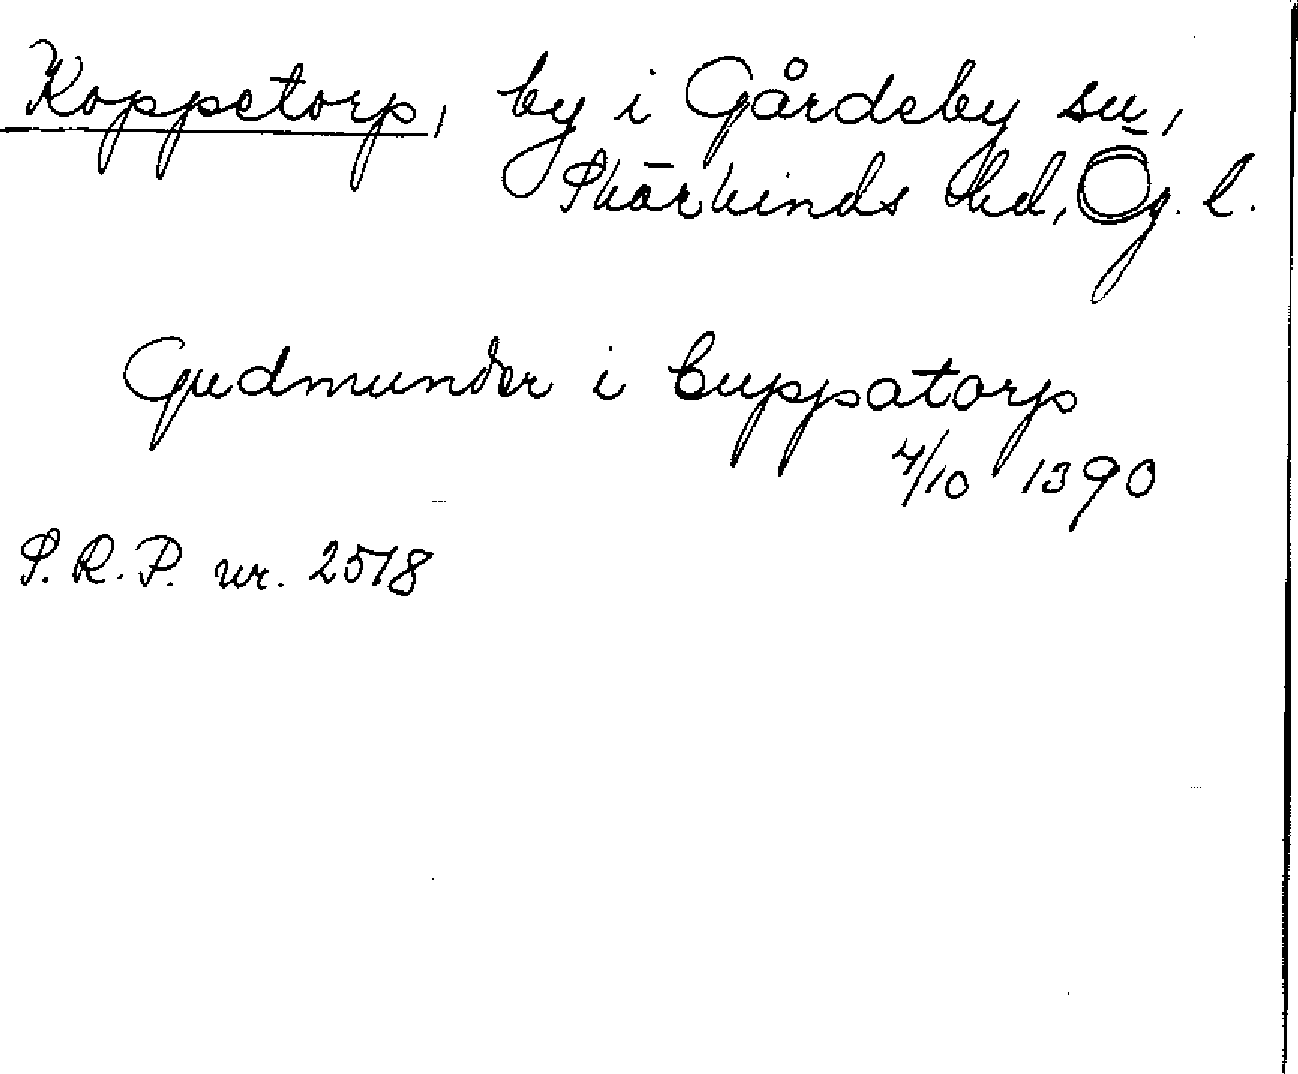 Koppetorp, by i Gårdeby sn,
Skärkinds hd, Ög. l.
Gudmunder i Cuppatorp
4/10 1390
S.R.P. nr. 2518